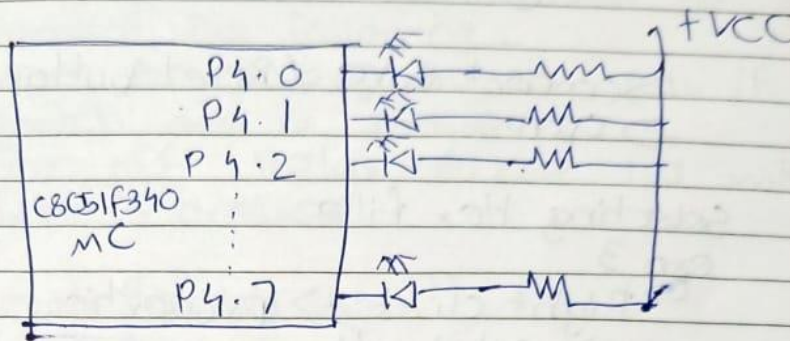 +VCC
P4.0
P4.1
P4.2
C8051F340
MC
P4.7